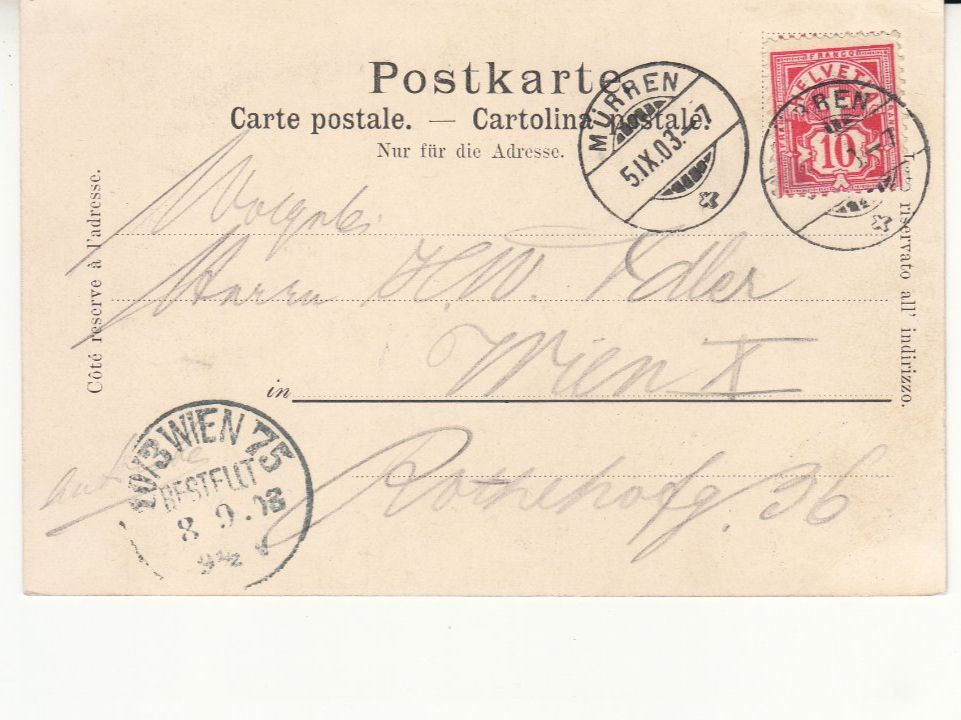 Postkarte.
Carte postale. — Cartolina postale.
Nur für die Adresse.
MÜRREN
5.IX.03.–7
FRANCO
HELVETIA
10
RREN
Côté reservé à l'adresse.
Lato riservato all' indirizzo.
Herrn H.W. Adler
in Wien X
36
10/3 WIEN 75
BESTELLT
8.9.03
9½ V